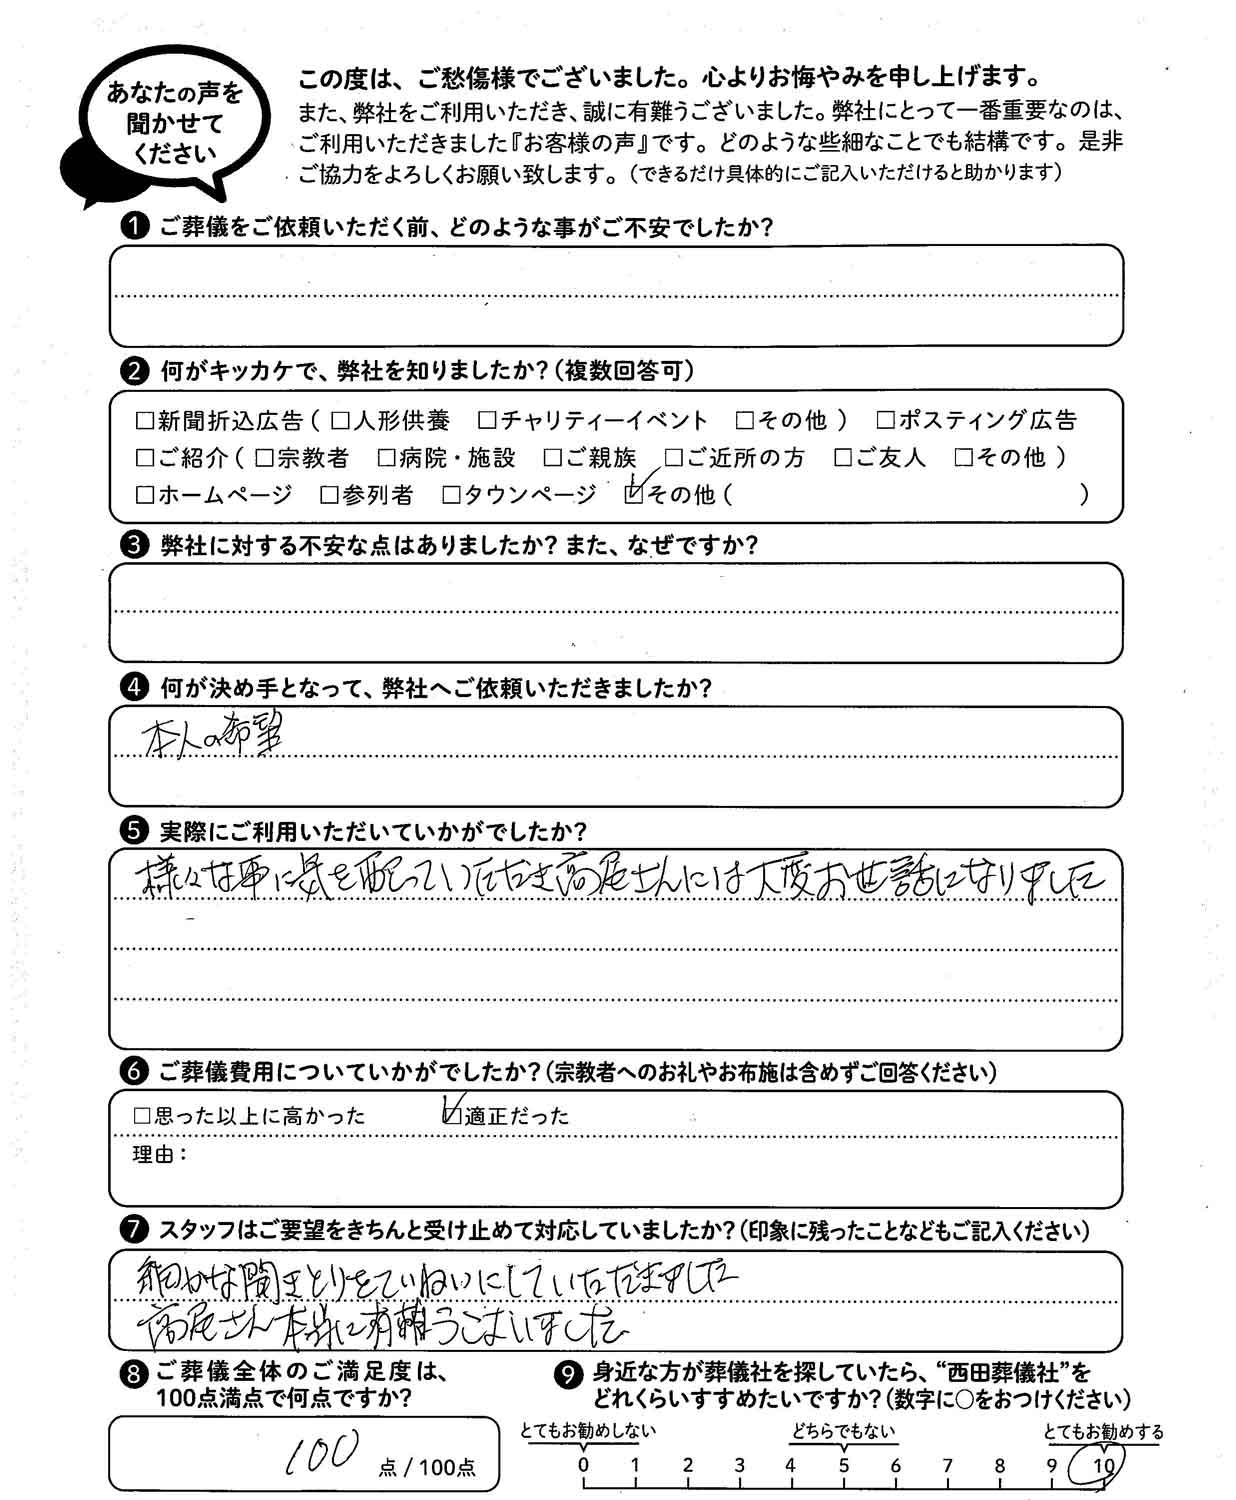 あなたの声を
聞かせて
ください
この度は、ご愁傷様でございました。心よりお悔やみを申し上げます。
また、弊社をご利用いただき、誠に有難うございました。弊社にとって一番重要なのは、
ご利用いただきました『お客様の声』です。どのような些細なことでも結構です。是非
ご協力をよろしくお願い致します。（できるだけ具体的にご記入いただけると助かります）
❶ ご葬儀をご依頼いただく前、どのような事がご不安でしたか？
❷ 何がキッカケで、弊社を知りましたか？（複数回答可）
□新聞折込広告（ □人形供養 □チャリティーイベント □その他 ） □ポスティング広告
□ご紹介（ □宗教者 □病院・施設 □ご親族 □ご近所の方 □ご友人 □その他 ）
□ホームページ □参列者 □タウンページ ☑その他（ ）
❸ 弊社に対する不安な点はありましたか？また、なぜですか？
❹ 何が決め手となって、弊社へご依頼いただきましたか？
本人の希望
❺ 実際にご利用いただいていかがでしたか？
様々な事に気を配っていただき高尾さんには大変お世話になりました
❻ ご葬儀費用についていかがでしたか？（宗教者へのお礼やお布施は含めずご回答ください）
□思った以上に高かった ☑適正だった
理由：
❼ スタッフはご要望をきちんと受け止めて対応していましたか？（印象に残ったことなどもご記入ください）
細かな聞きとりをていねいにしていただきました
高尾さん本当に有難うございました
❽ ご葬儀全体のご満足度は、
100点満点で何点ですか？
100 点 / 100点
❾ 身近な方が葬儀社を探していたら、“西田葬儀社”を
どれくらいすすめたいですか？（数字に○をおつけください）
とてもお勧めしない どちらでもない とてもお勧めする
0 1 2 3 4 5 6 7 8 9 10